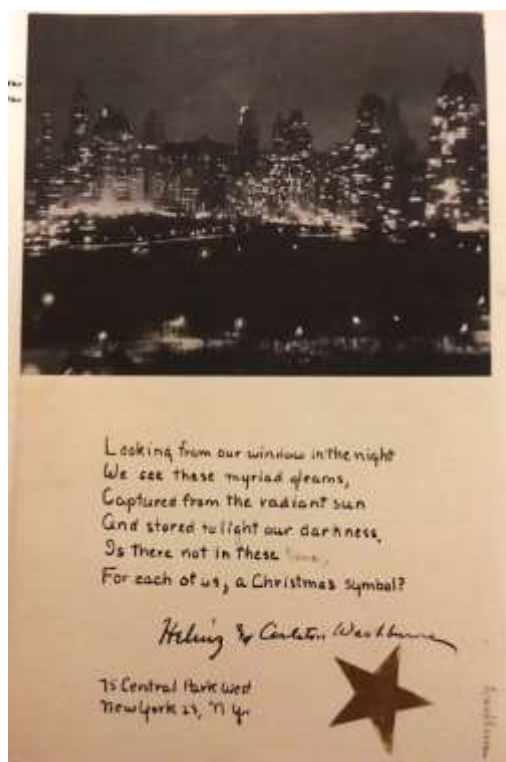 Looking from our window in the night
We see these myriad gleams,
Captured from the radiant sun
And stored to light our darkness,
Is there not in these
For each of us, a Christmas symbol?
Heluiz & Carleton Washburne
75 Central Park West
New York 23, N.Y.